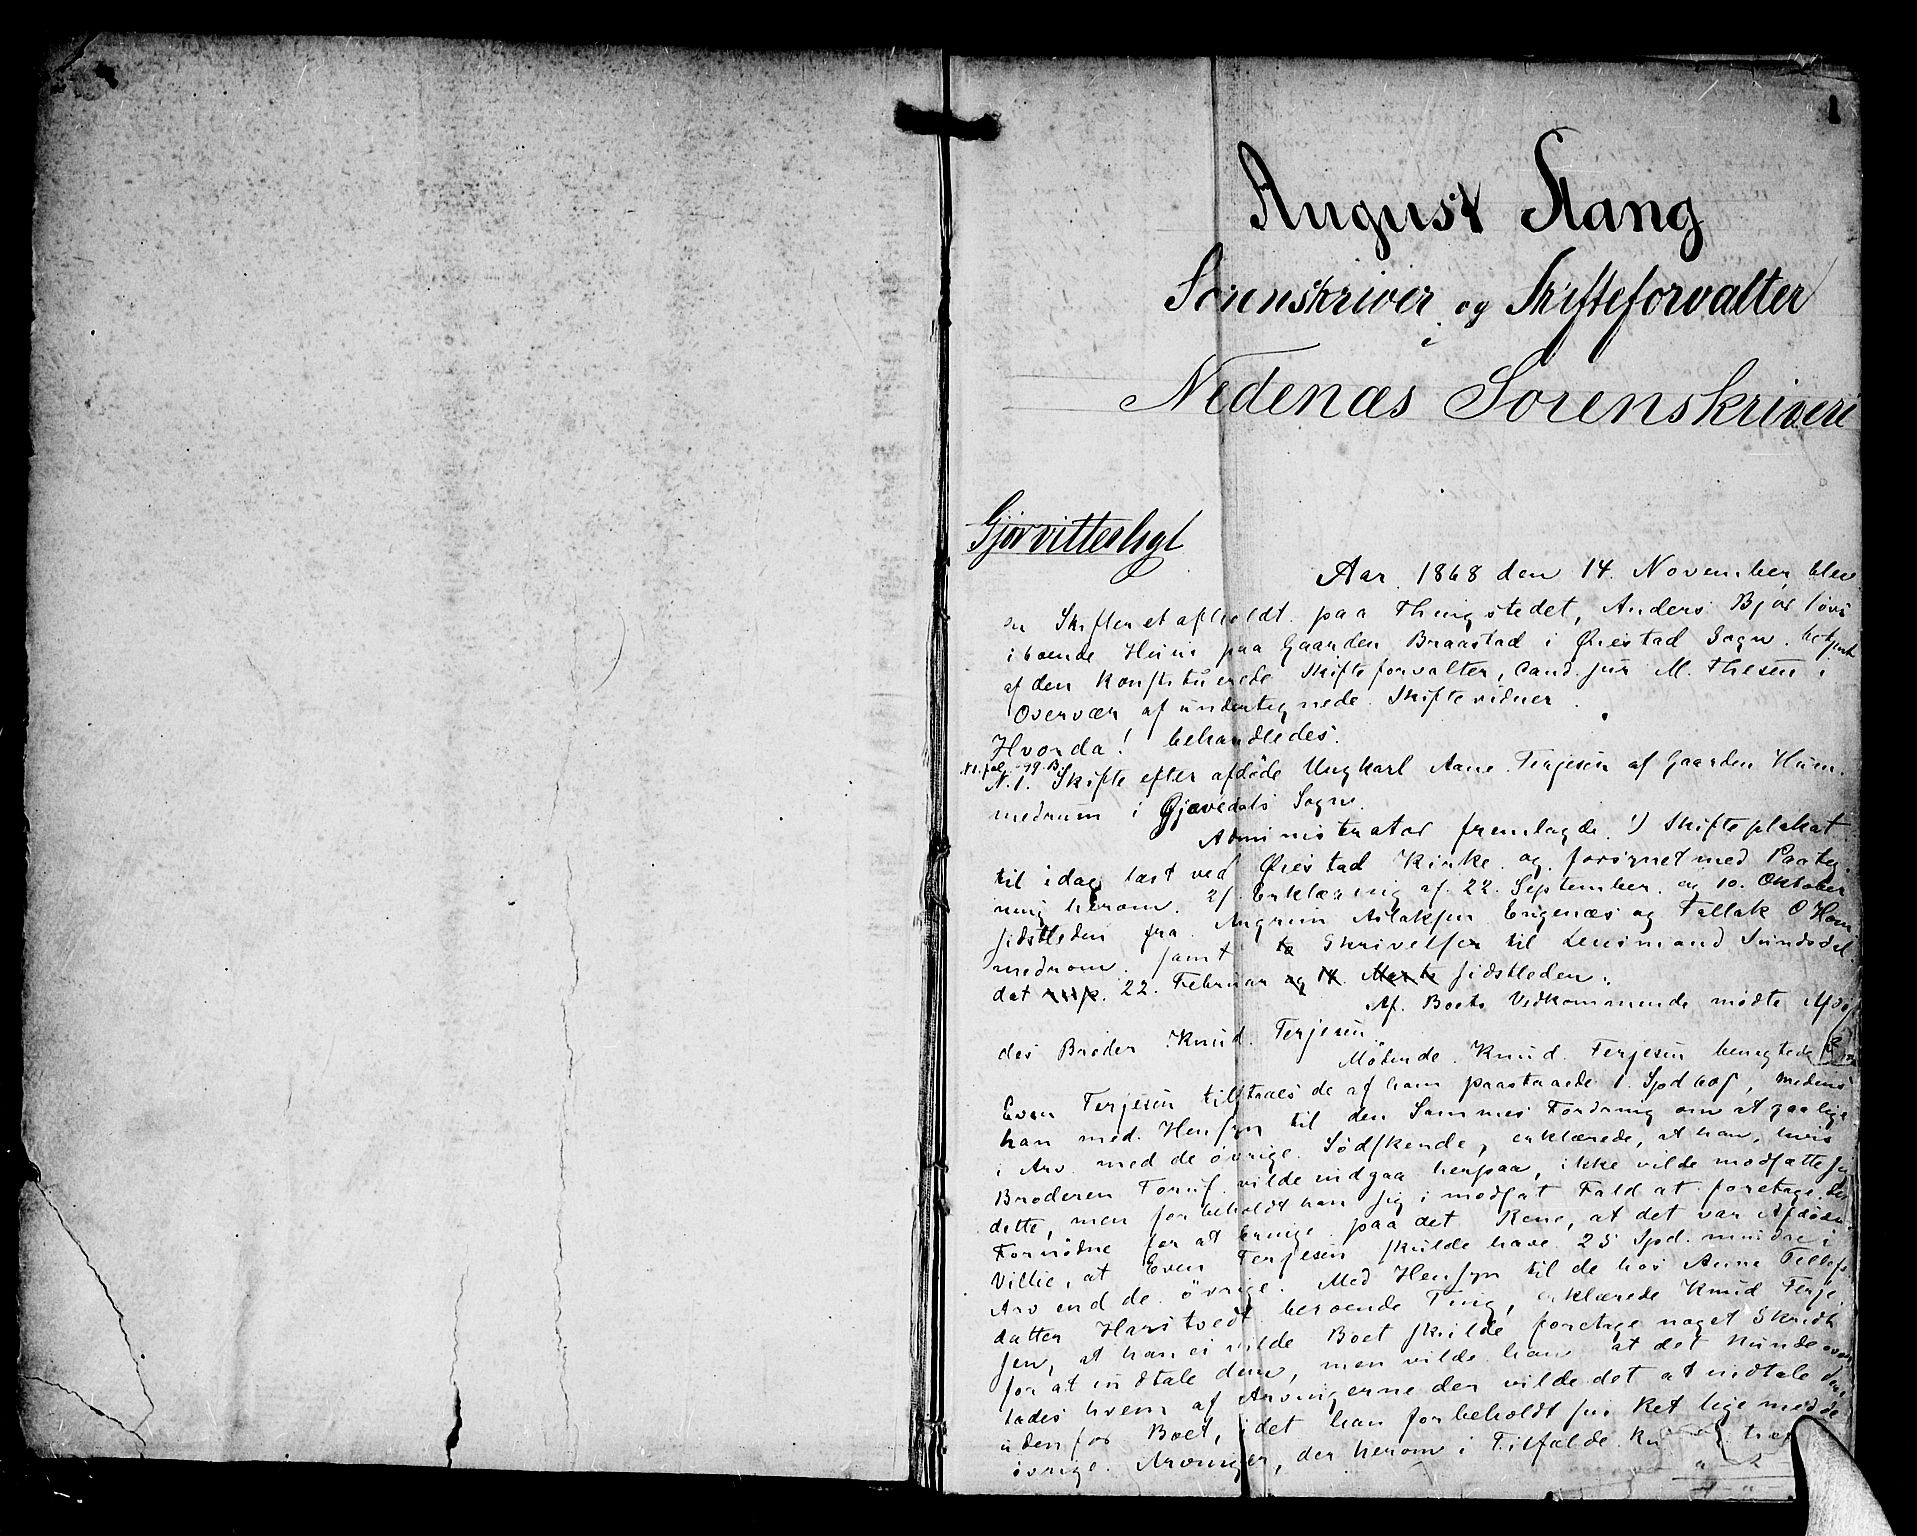 1
August Stang
Sorenskriver og Skifteforvalter
i
Nedenæs Sorenskriveri
Gjør vitterligt
Aar 1868 den 14. November blev
en Skifteret afholdt paa Thingstedet, Anders
iboende Huus paa Gaarden Braastad i Øiestad Sogn. betjent
af den konstituerede Skifteforvalter, Cand. jur M. Thesen i
Overvær af undertegnede Skiftevidner.
Hvorda! behandledes.
N. 1. Skifte efter afdøde Ungkarl Aane Terjesen af Gaarden Hom-
medrum i Gjøvedals Sogn.
Administrator fremlagde 1) Skifteplakat
til idag læst ved Øiestad Kirke og forsynet med Paateg-
ning herom. 2) Erklæring af 22. September og 10. Oktober
sidstleden fra Aslaksen og Tellak O Hom
medrom samt to Skrivelser til Lensmand
dat 22. Februar og 14. Marts sidstleden.
Af Boets Vedkommende mødte Afdø-
des Broder Knud Terjesen
Mødende Knud Terjesen benegtede
Even Terjesen tilstaaes de af ham paastaaede Spd, medens
han med Hensyn til den Sammes Fordring om at gaa lige
i Arv med de øvrige Sødskende, erklærede, at han, hvis
Broderen vilde indgaa herpaa, ikke vilde modsætte sig
dette, men forbeholdt han sig i modsat Fald at foretage det
Fornødne for at bringe paa det Rene, at det var Afdødes
Villie, at Even Terjesen skulde have 25 Spd. mindre i
Arv end de øvrige. Med Hensyn til de hos Anne Tellefs-
datter Harstvedt beroende Ting, erklærede Knud Terje-
sen, at han ei vilde Boet skulde foretage noget Skridt
for at indtale dem, men vilde han at det kunde over
lades hvem af Arvingerne der vilde det at indtale dem
udenfor Boet, idet han forbeholdt sig Ret lige med de
øvrige Arvinger, der herom i Tilfælde